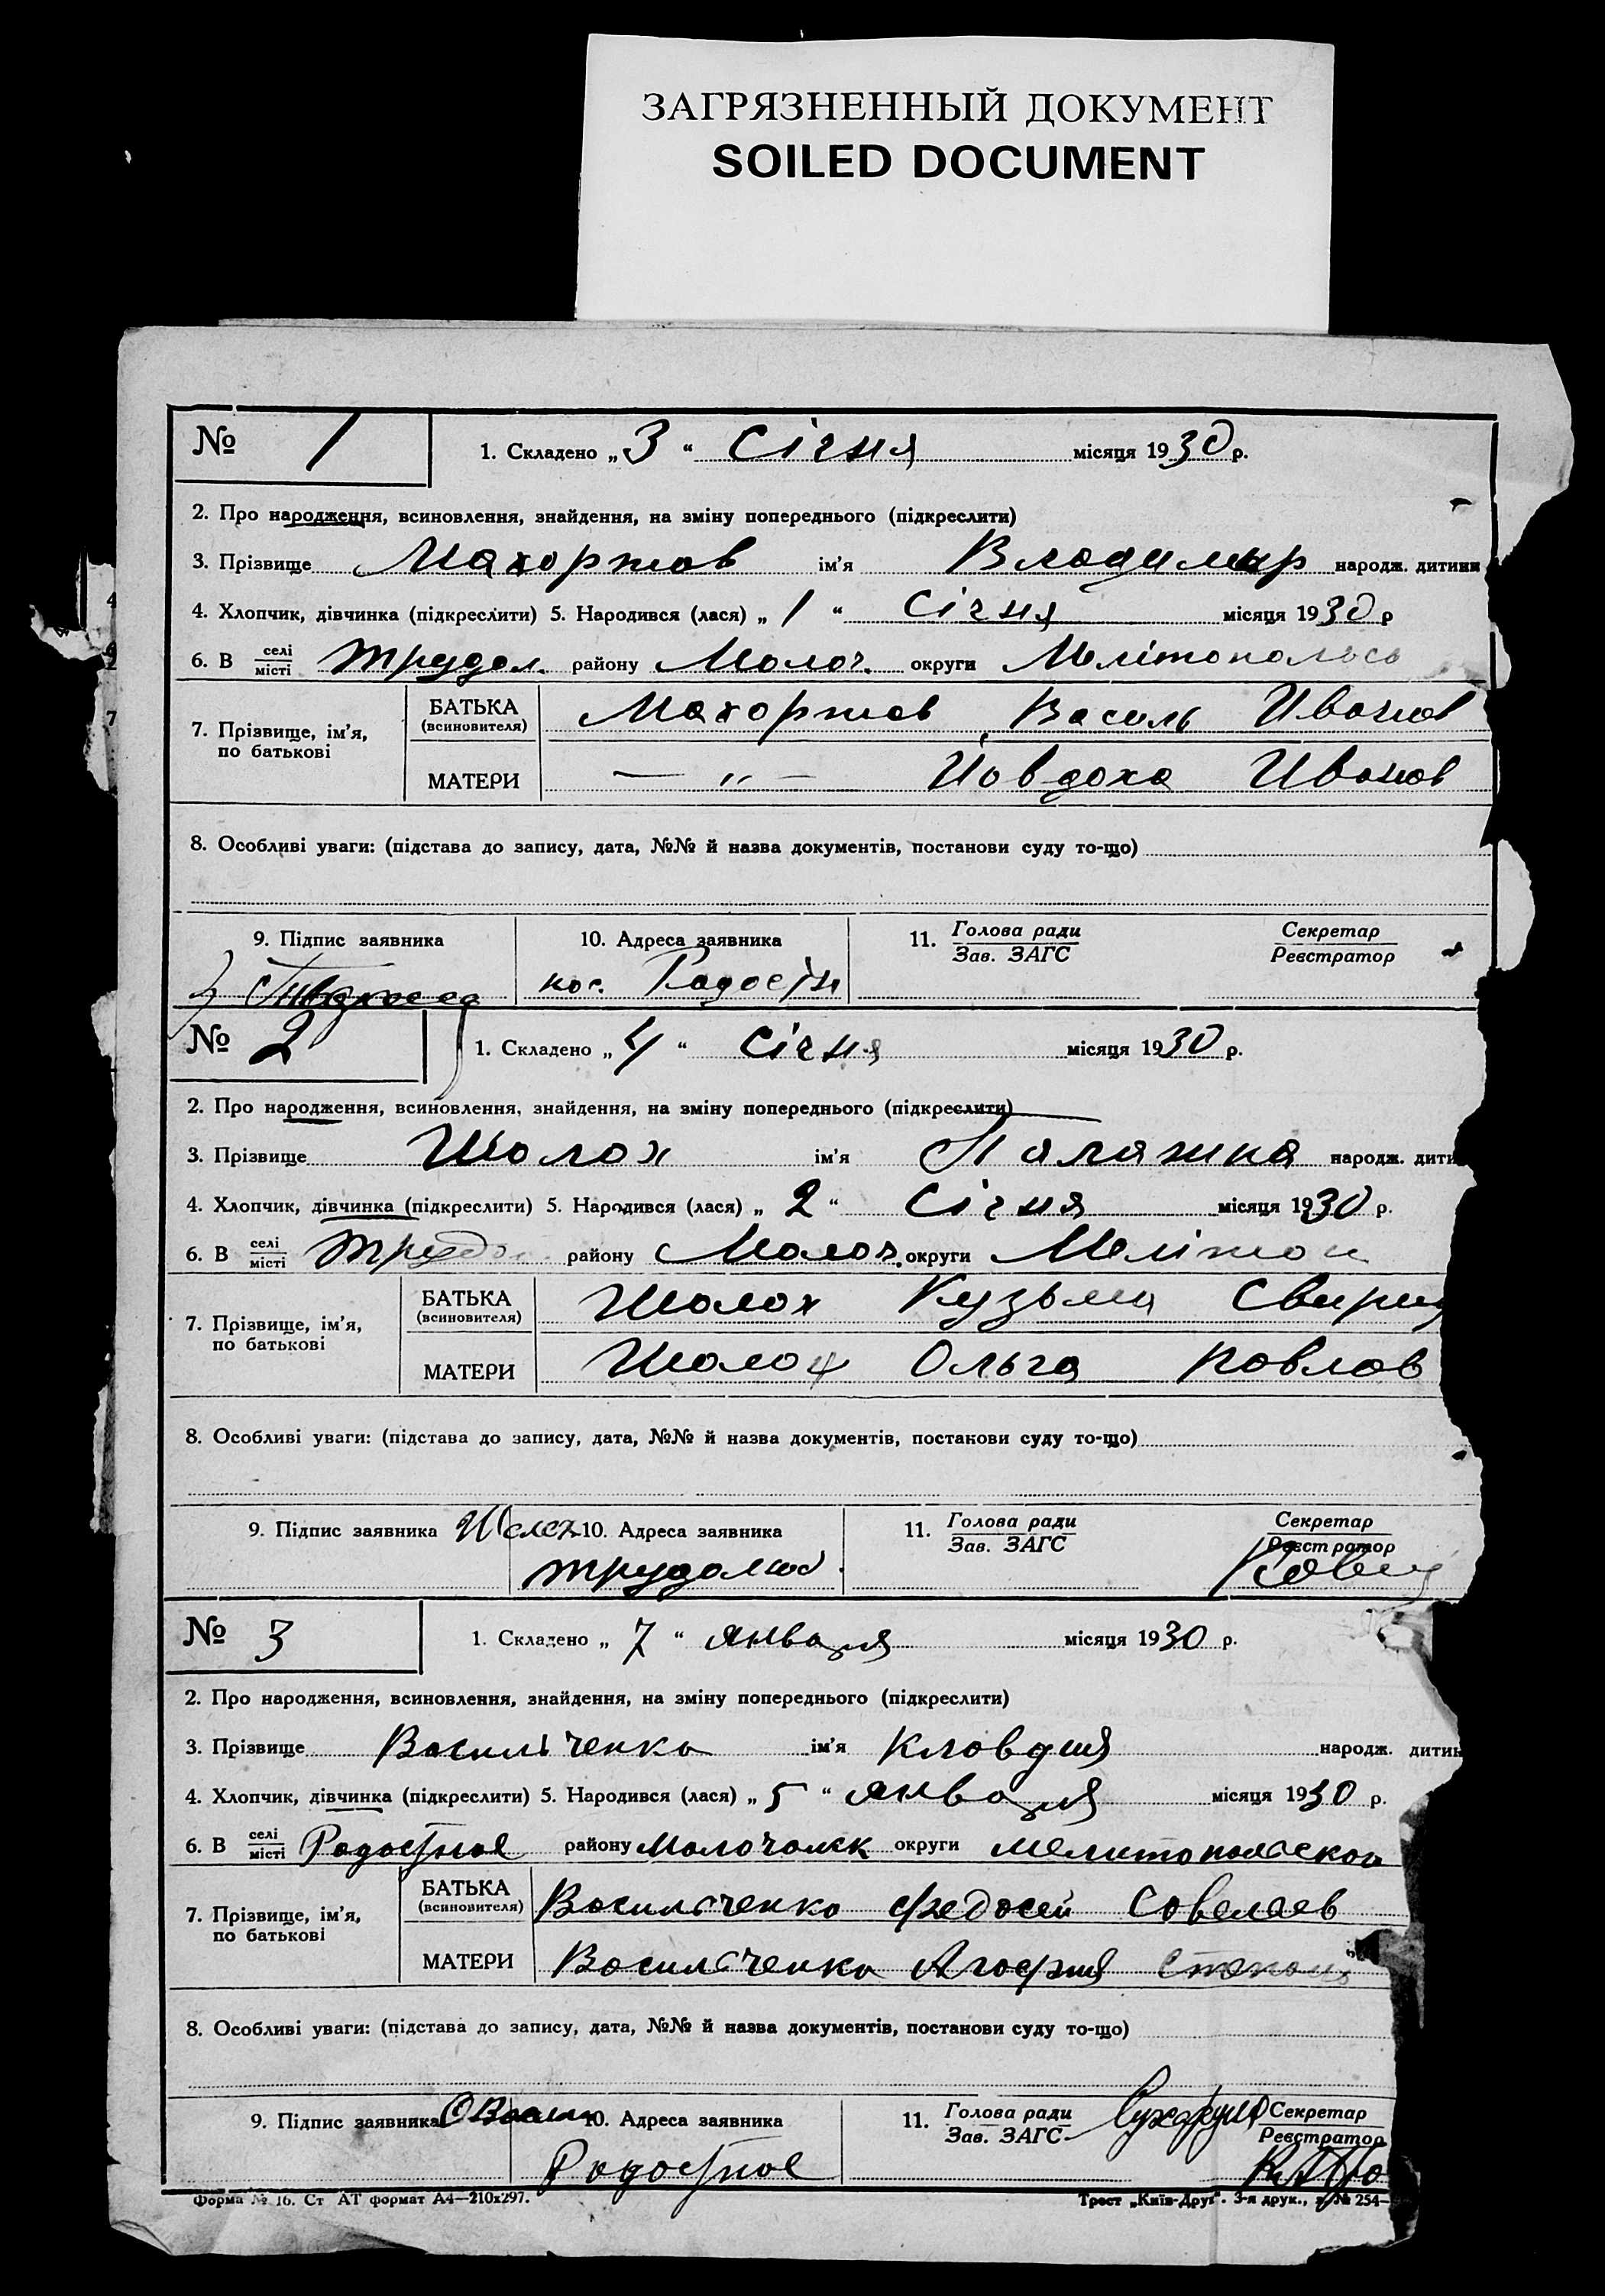 ЗАГРЯЗНЕННЫЙ ДОКУМЕНТ
SOILED DOCUMENT
№ 1
1. Складено „ 3 “ Січня місяця 1930 р.
2. Про народження, всиновлення, знайдення, на зміну попереднього (підкреслити)
3. Прізвище Махортов ім'я Владимир народж. дитини
4. Хлопчик, дівчинка (підкреслити) 5. Народився (лася) „ 1 “ Січня місяця 1930 р
6. В селі місті Трудол. району Молоч. округи Мелітопольсь
7. Прізвище, ім'я, по батькові
БАТЬКА (всиновителя) Махортов Василь Иванов
МАТЕРИ — „ — Йовдоха Иванов
8. Особливі уваги: (підстава до запису, дата, №№ й назва документів, постанови суду то-що)
9. Підпис заявника 10. Адреса заявника 11. Голова ради Зав. ЗАГС Секретар Реєстратор
пос. Радостн
№ 2
1. Складено „ 4 “ Січня місяця 1930 р.
2. Про народження, всиновлення, знайдення, на зміну попереднього (підкреслити)
3. Прізвище Шолох ім'я Палажка народж. дити
4. Хлопчик, дівчинка (підкреслити) 5. Народився (лася) „ 2 “ Січня місяця 1930 р.
6. В селі місті Трудо району Молоч. округи Меліто
7. Прізвище, ім'я, по батькові
БАТЬКА (всиновителя) Шолох Кузьма Свирид
МАТЕРИ Шолох Ольга Павлов
8. Особливі уваги: (підстава до запису, дата, №№ й назва документів, постанови суду то-що)
9. Підпис заявника Шолох 10. Адреса заявника 11. Голова ради Зав. ЗАГС Секретар Реєстратор
Трудолюб
№ 3
1. Складено „ 7 “ января місяця 1930 р.
2. Про народження, всиновлення, знайдення, на зміну попереднього (підкреслити)
3. Прізвище Васильченко ім'я Клавдия народж. дитин
4. Хлопчик, дівчинка (підкреслити) 5. Народився (лася) „ 5 “ января місяця 1930 р.
6. В селі місті Радостное району Молочанск округи Мелитопольской
7. Прізвище, ім'я, по батькові
БАТЬКА (всиновителя) Васильченко Федосей Савелев
МАТЕРИ Васильченко Агафия Степан
8. Особливі уваги: (підстава до запису, дата, №№ й назва документів, постанови суду то-що)
9. Підпис заявника 10. Адреса заявника 11. Голова ради Зав. ЗАГС Секретар Реєстратор
Радостное
Форма № 16. Ст АТ формат А4—210х297.
Трест „Київ-Друк“. 3-я друк., з. № 254—